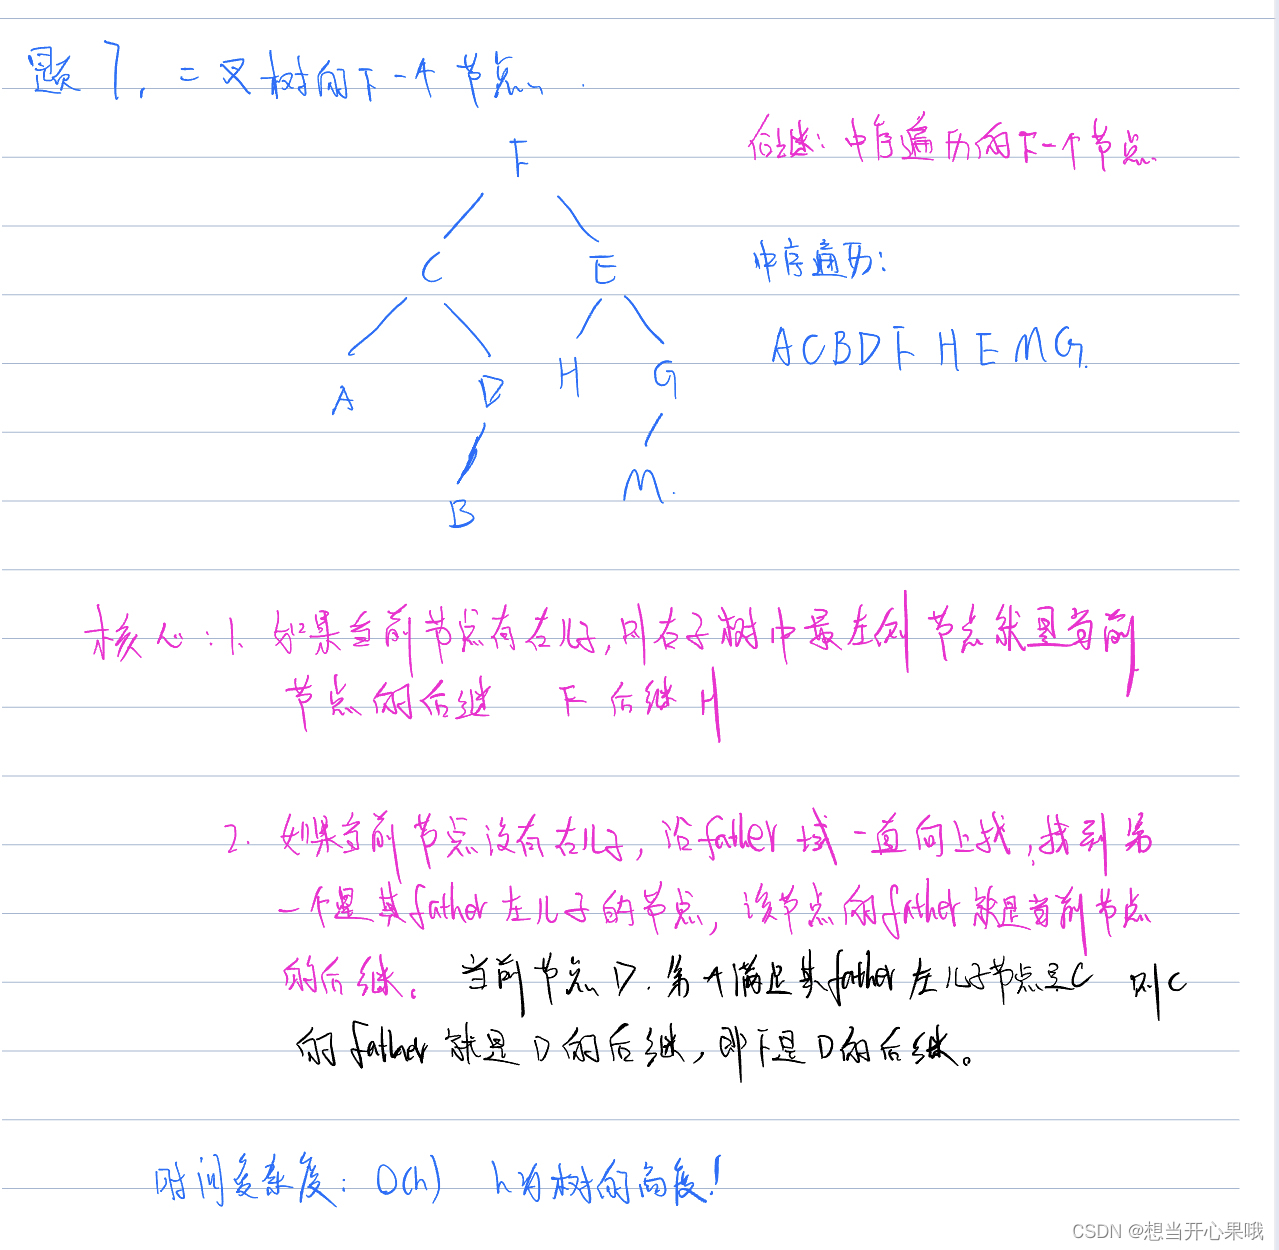 题7. 二叉树的下一个节点.
后继: 中序遍历的下一个节点
F
中序遍历:
C E
A C B D F H E M G.
A D H G
B M.
核心: 1. 如果当前节点有右儿子, 则右子树中最左侧节点就是当前
节点的后继 F后继H
2. 如果当前节点没有右儿子, 沿father域一直向上找, 找到第
一个是其father左儿子的节点, 该节点的father就是当前节点
的后继。 当前节点D. 第一个满足其father左儿子节点是C 则C
的father就是D的后继, 即F是D的后继。
时间复杂度: O(h) h为树的高度!
CSDN @想当开心果哦